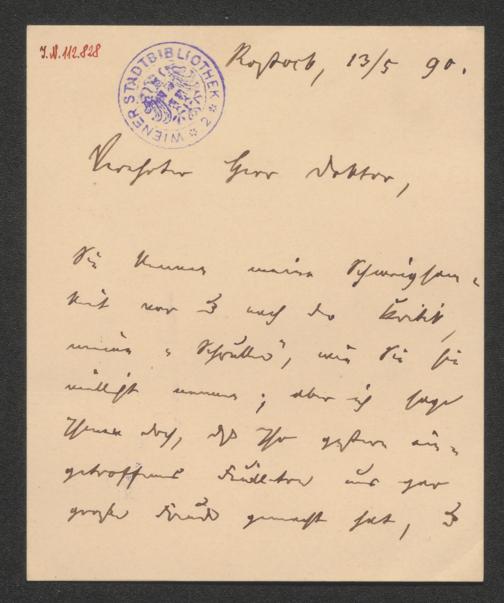 I.N. 112.828
WIENER STADTBIBLIOTHEK * 2 *
Rostock, 13/5 90.
Verehrter Herr Doktor,
Sie kennen meine Schweigsam-
keit vor u nach der Kritik,
meine „Schrulle", wie Sie sie
vielleicht nennen; aber ich sage
Ihnen doch, daß Ihr gestern ein-
getroffenes Feuilleton uns gar
große Freude gemacht hat, u